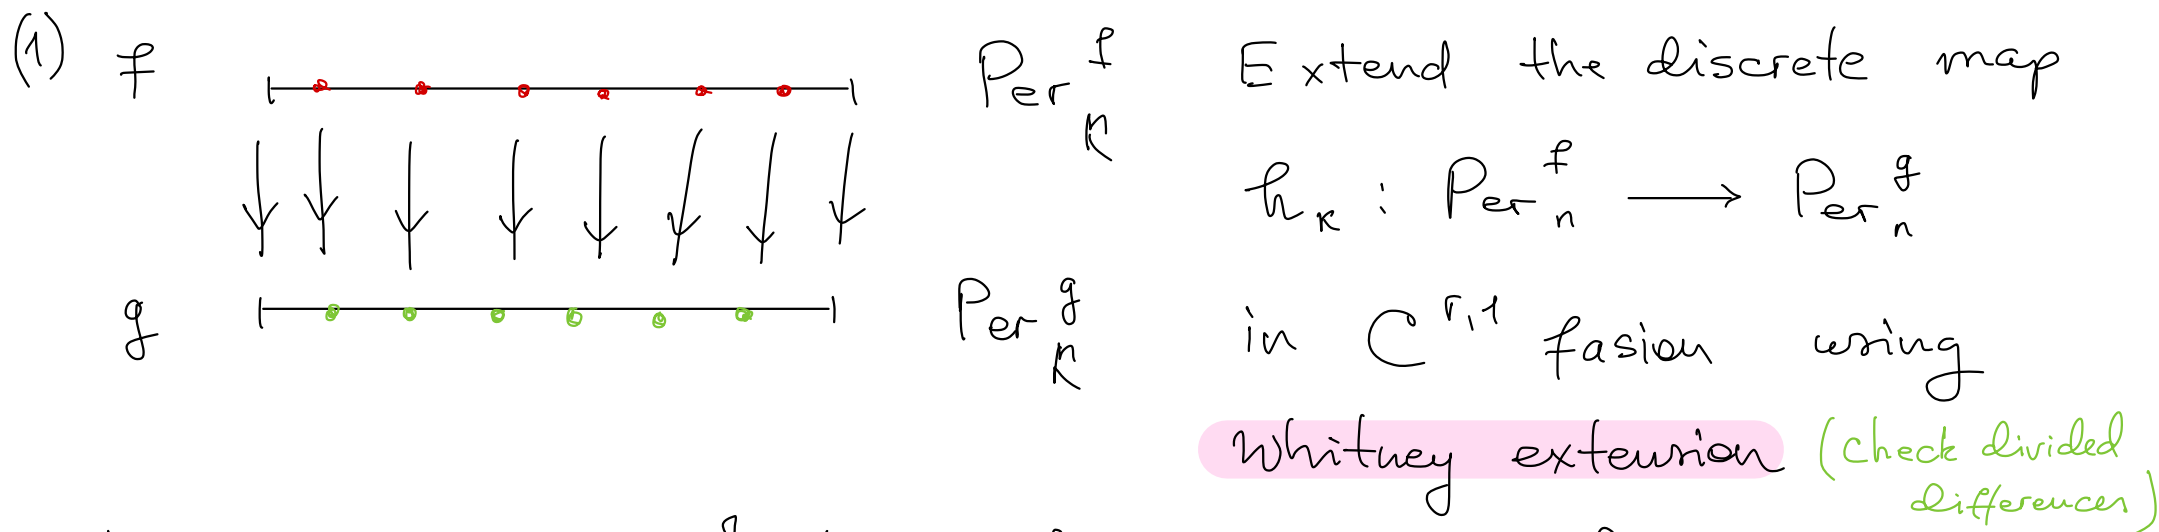 (1) f Per^f_n Extend the discrete map
h_k : Per^f_n → Per^g_n
g Per^g_n in C^{r,1} fasion using
Whitney extension (check divided
differences)